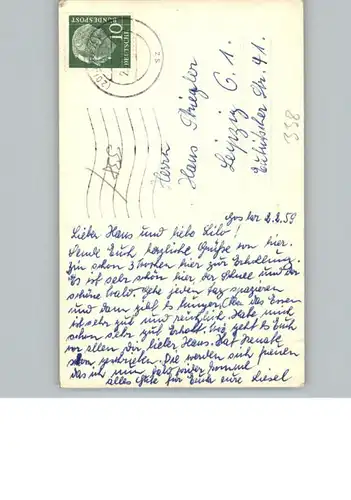 10
DEUTSCHE
BUNDESPOST
Herrn
Hans Stiegler
Leipzig C. 1.
Str. 41.
338
Goslar 2.2.59
Lieber Hans und liebe Lilo!
Sende Euch herzliche Grüße von hier.
Bin schon 3 Wochen hier zur Erholung.
Es ist sehr schön hier, der Schnee und der
schöne Wald. Gehe jeden Tag spazieren
und dann gibt es Hunger, das Essen
ist sehr gut und reichlich. Habe mich
schon sehr gut erholt. Wie geht es Euch
vor allen Dir lieber Hans. Hat Renate
schon geschrieben. Die werden sich freuen
das ich nun bald wieder komme
alles Gute für Euch eure Liesel